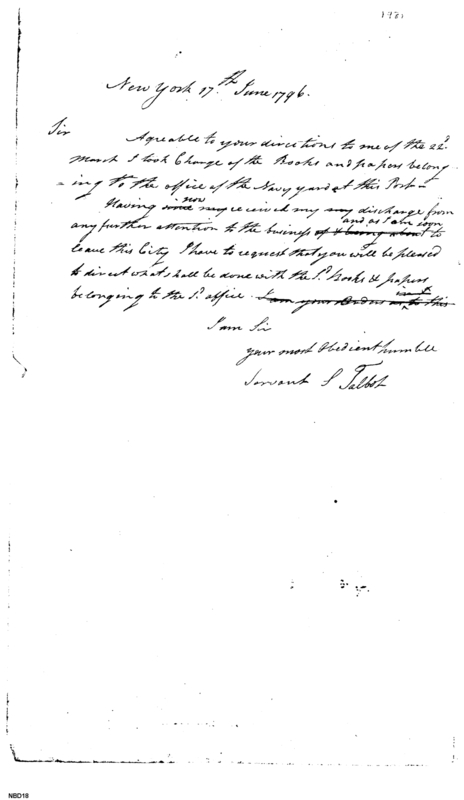 1981
New York 17th June 1796.
Sir
Agreable to your directions to me of the 22d
March I took Charge of the Books and papers belong
-ing to the office of the Navy yard at this Port -
now
Having since my received my my discharge from
and as I am soon
any further attention to the business of & being about to
leave this City I have to request that you will be pleased
to direct what shall be done with the Sd. Books & papers
belonging to the Sd. office. I am your to this
I am Sir
your most Obedient humble
Servant S Talbot
NBD18